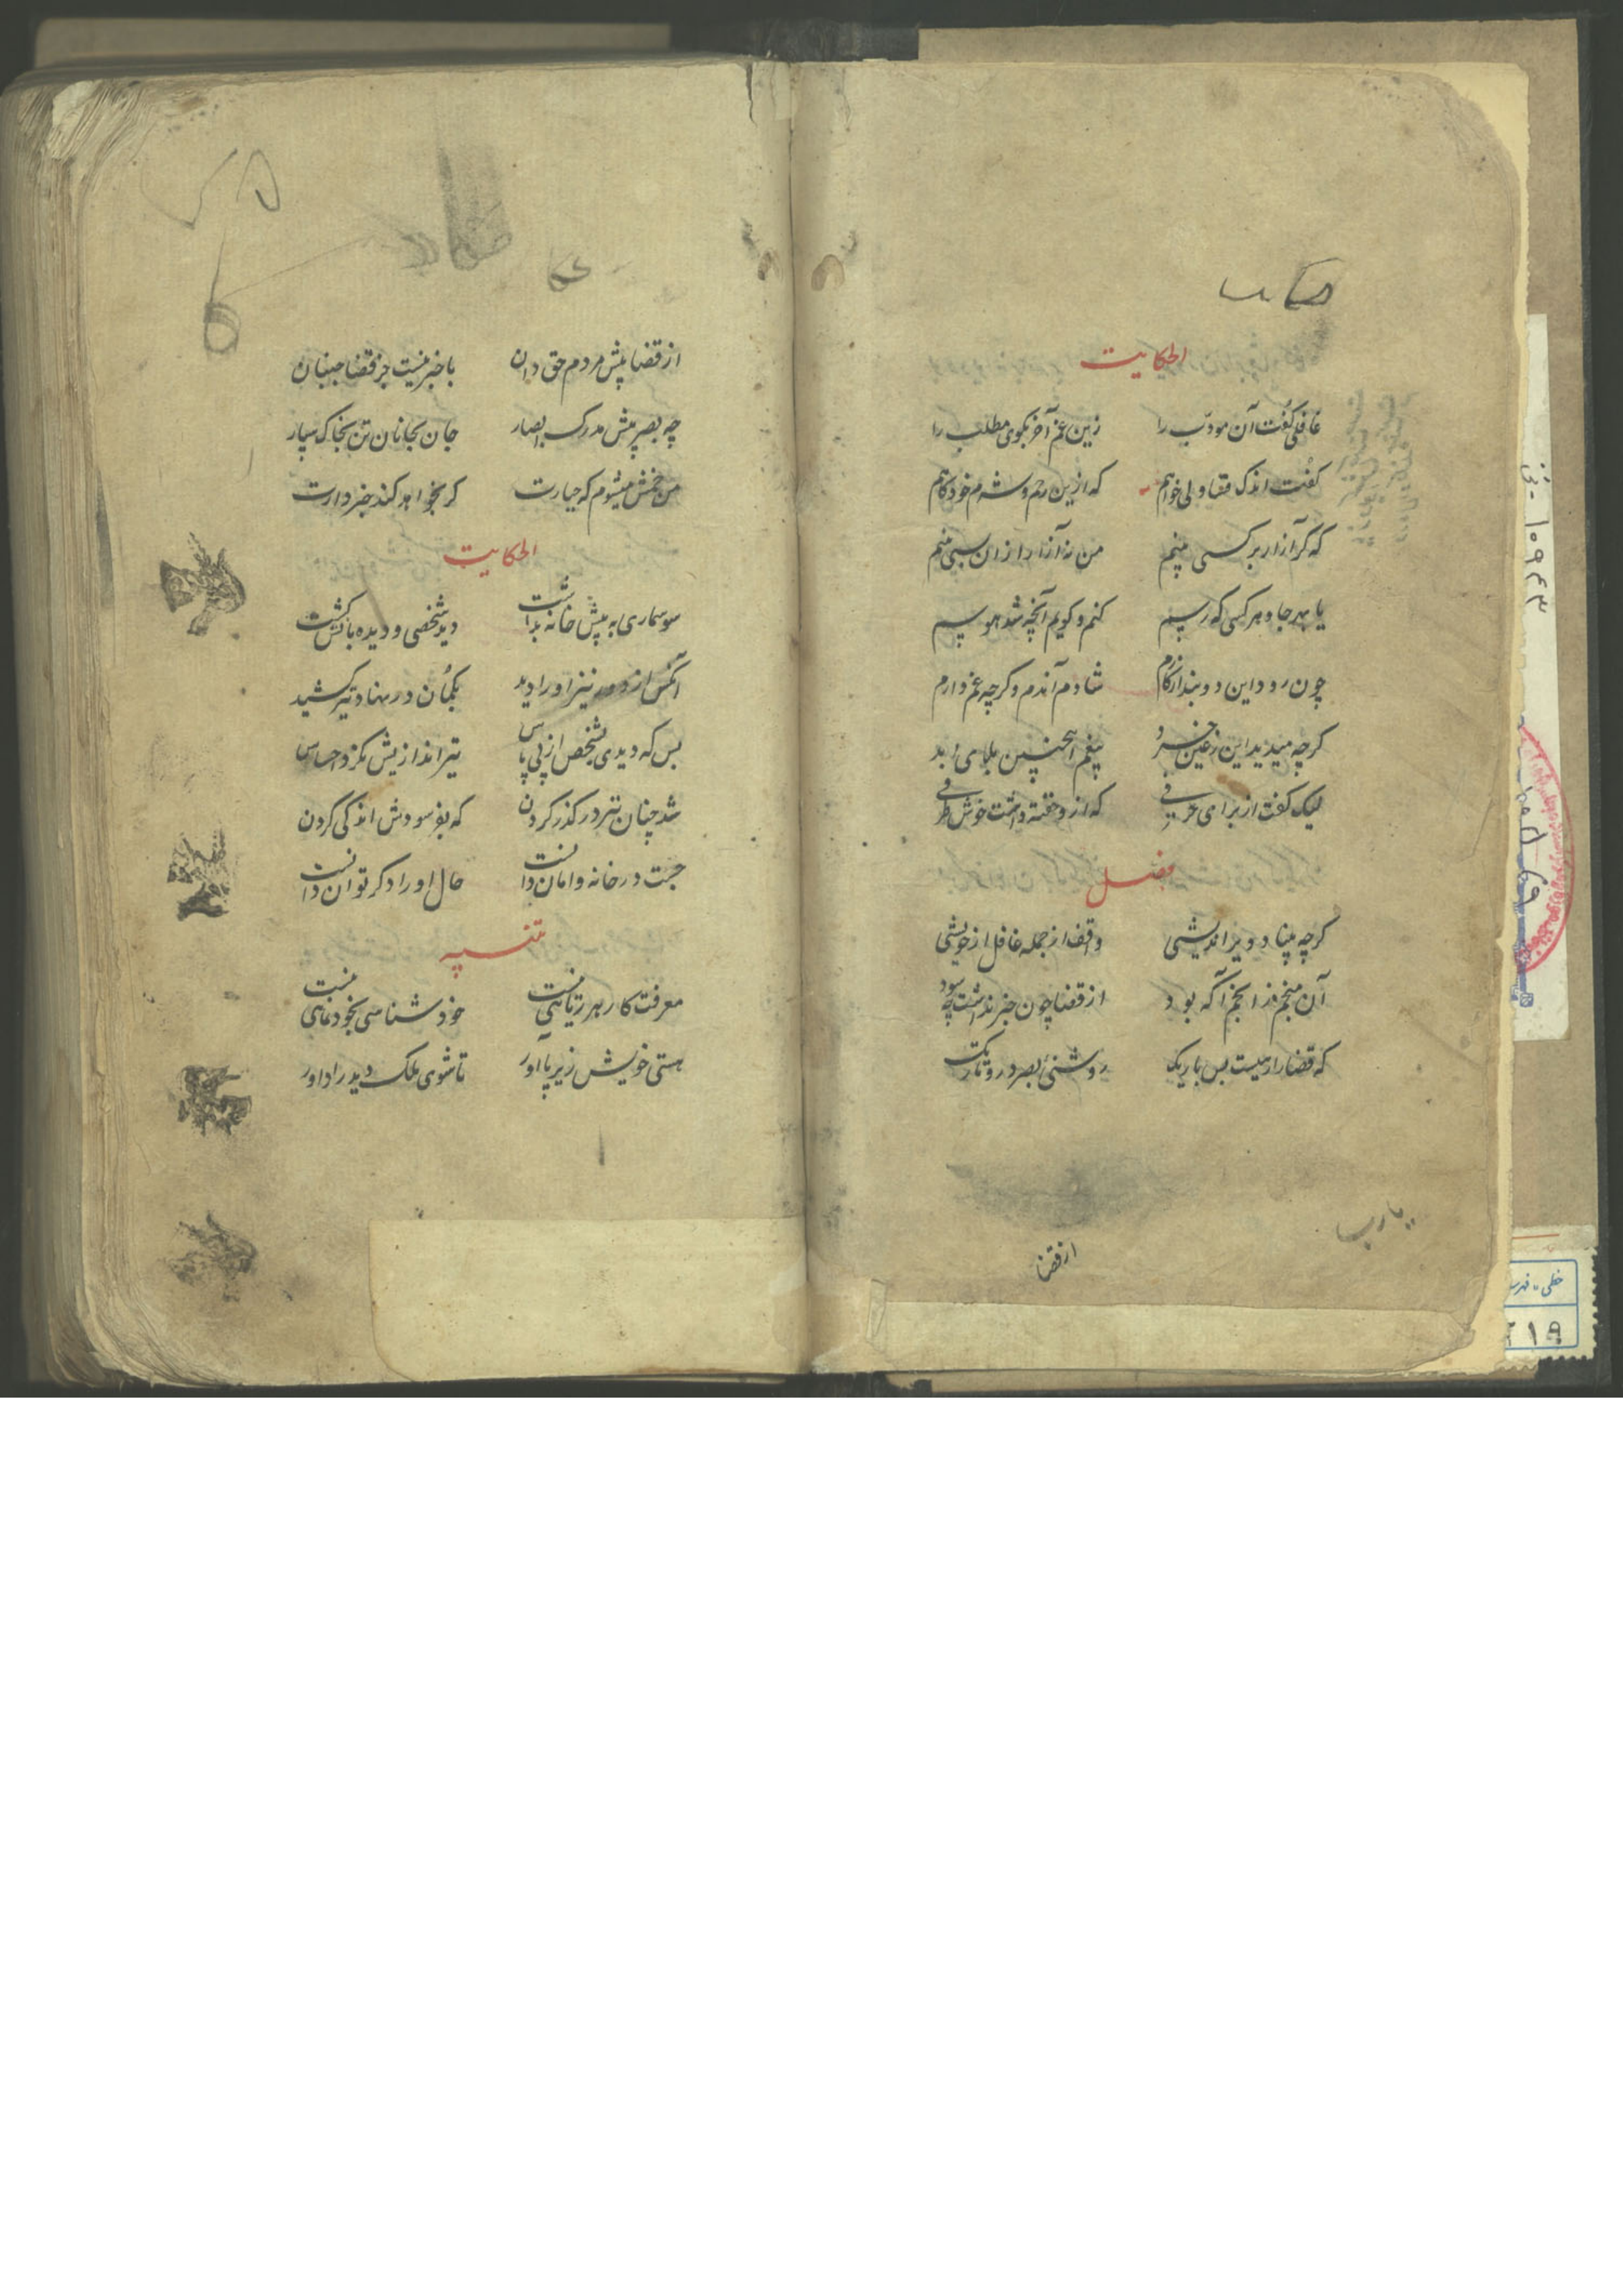 حکایت
الحکایت
غافلی گفت آن مودّب را    زین غم آخر بگوی مطلب را
گفت اندک مقاولی خواهم    که ازین رحم و شرم خودکاهم
که گر آزار بر کسی بینم    من نه آزار از ان سبی بینم
یا بهر جا و هر کسی که رسیم    کنم و گویم آنچه شد هوسیم
چون رود این دو بند از کارم    شادم آندم و گرچه غم دارم
گرچه میدید این ز عین خرد    بیغم اینچنین بلای ابد
لیک گفت از برای حریفی    که ازو فتنه داشت خوش طرفی
فصل
گرچه بینا و دوراندیشی    واقف از جمله غافل از خویشی
آن منجم ز انجم آگه بود    از قضا چون خبر نداشت چه سود
که قضا را رهیست بس باریک    روشنئ بصر درو تاریک
یا رب
از قضا
از قضا پیش مردم حق دان    با خبر نیست جز قضا جنبان
چه بصر پیش مدرک ابصار    جان بجانان تن بخاک سپار
من خمش میشوم که جبارت    گر بخواهد کند خبردارت
الحکایت
سوسماری به پیش خانه بداشت    دید شخصی و دیده با کش گشت
آنکس از دور نیز او را دید    بکمان در نهاد تیر کشید
بس که دیدی بشخص از پی پاس    تیر اندازیش نکرد احساس
شد چنان تیر در گذر کردن    که بفرسودش اندکی گردن
جست در خانه و امان دانست    حال او را دگر توان دانست
تنبیه
معرفت کار هر ریائی نیست    خودشناسی بخودنمائی نیست
هستی خویش زیر پا آور    تا شوی ملک دید را داور
۱۰۹۴۳
خطی - فهرست